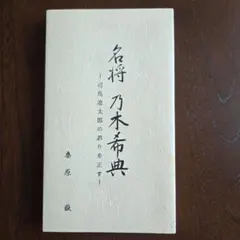 名将 乃木希典
―司馬遼太郎の誤りを正す―
桑原 嶽